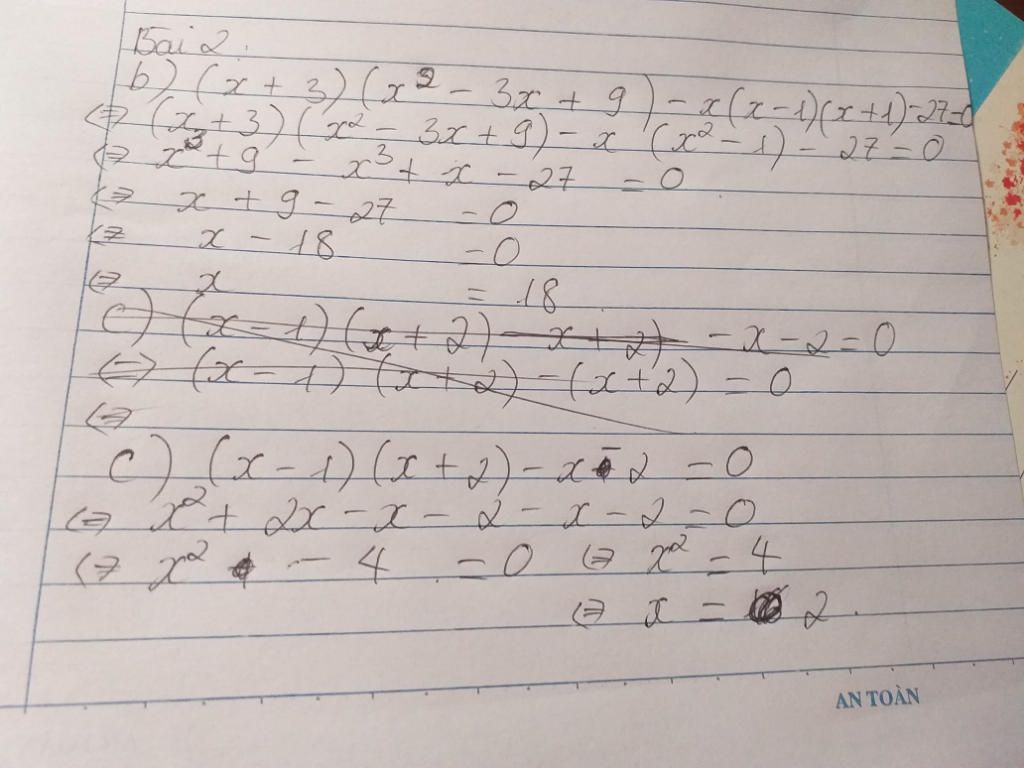 Bài 2.
b) (x + 3) (x² - 3x + 9) - x(x-1)(x+1)-27=0
⇔ (x+3) (x² - 3x+9) - x (x² - 1) - 27 = 0
⇔ x³ + 9 - x³ + x - 27 = 0
⇔ x + 9 - 27 = 0
⇔ x - 18 = 0
⇔ x = 18
c) (x-1) (x+2) - x+2) - x - 2 = 0
⇔ (x-1) (x+2) - (x+2) = 0
⇔
c) (x-1) (x+2) - x - 2 = 0
⇔ x² + 2x - x - 2 - x - 2 = 0
⇔ x² - 4 = 0 ⇔ x² = 4
⇔ x = 2.
AN TOÀN